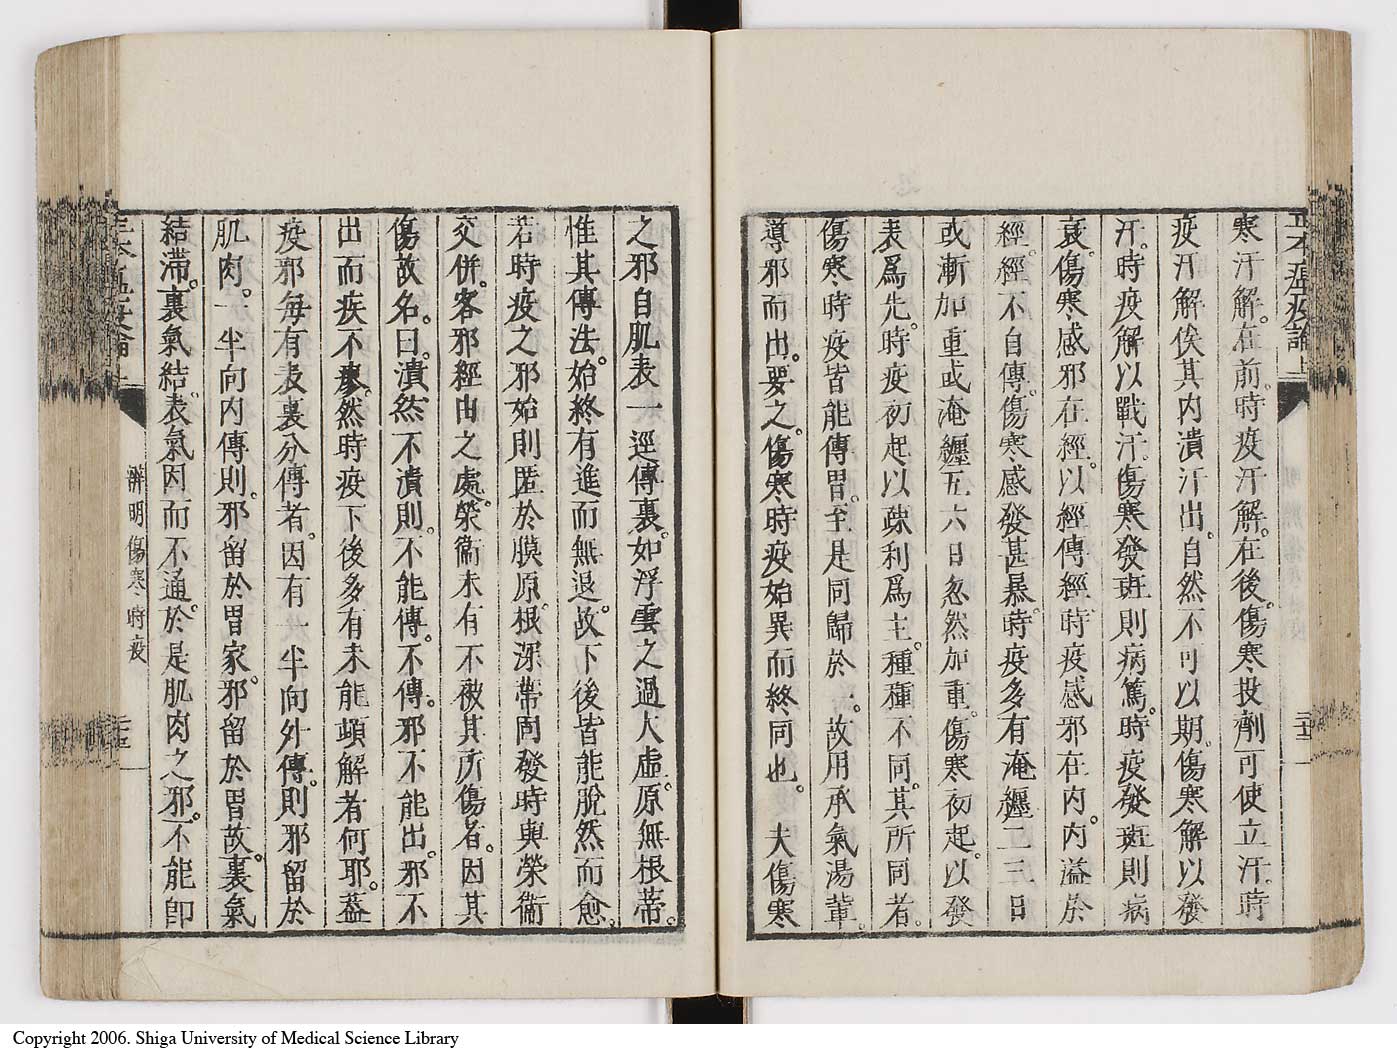 寒汗解。在前。時疫汗解。在後。傷寒投劑可使立汗。時
疫汗解俟其内潰汗出。自然不可以期。傷寒解以發
汗。時疫解以戰汗。傷寒發斑則病篤。時疫發斑則病
衰。傷寒感邪在經。以經傳經時疫感邪在内。内溢於
經。經不自傳。傷寒感發甚暴。時疫多有淹纏二三日
或漸加重或淹纏五六日忽然加重。傷寒初起。以發
表爲先。時疫初起以疎利爲主。種種不同。其所同者。
傷寒時疫皆能傳胃。至是同歸於一。故用承氣湯輩。
導邪而出。要之。傷寒時疫始異而終同也。夫傷寒
之邪自肌表一逕傳裏。如浮雲之過太虛。原無根蒂。
惟其傳法。始終有進而無退。故下後皆能脫然而愈。
若時疫之邪始則匿於膜原。根深蒂固發時與榮衞
交併。客邪經由之處。榮衞未有不被其所傷者。因其
傷故名。曰。潰然不潰則。不能傳。不傳。邪不能出。邪不
出而疾不瘳。然時疫下後多有未能頓解者何耶。蓋
疫邪每有表裏分傳者。因有一半向外傳。則邪留於
肌肉。一半向内傳則。邪留於胃家。邪留於胃故。裏氣
結滯。裏氣結。表氣因而不通。於是肌肉之邪。不能即
辨明傷寒時疫